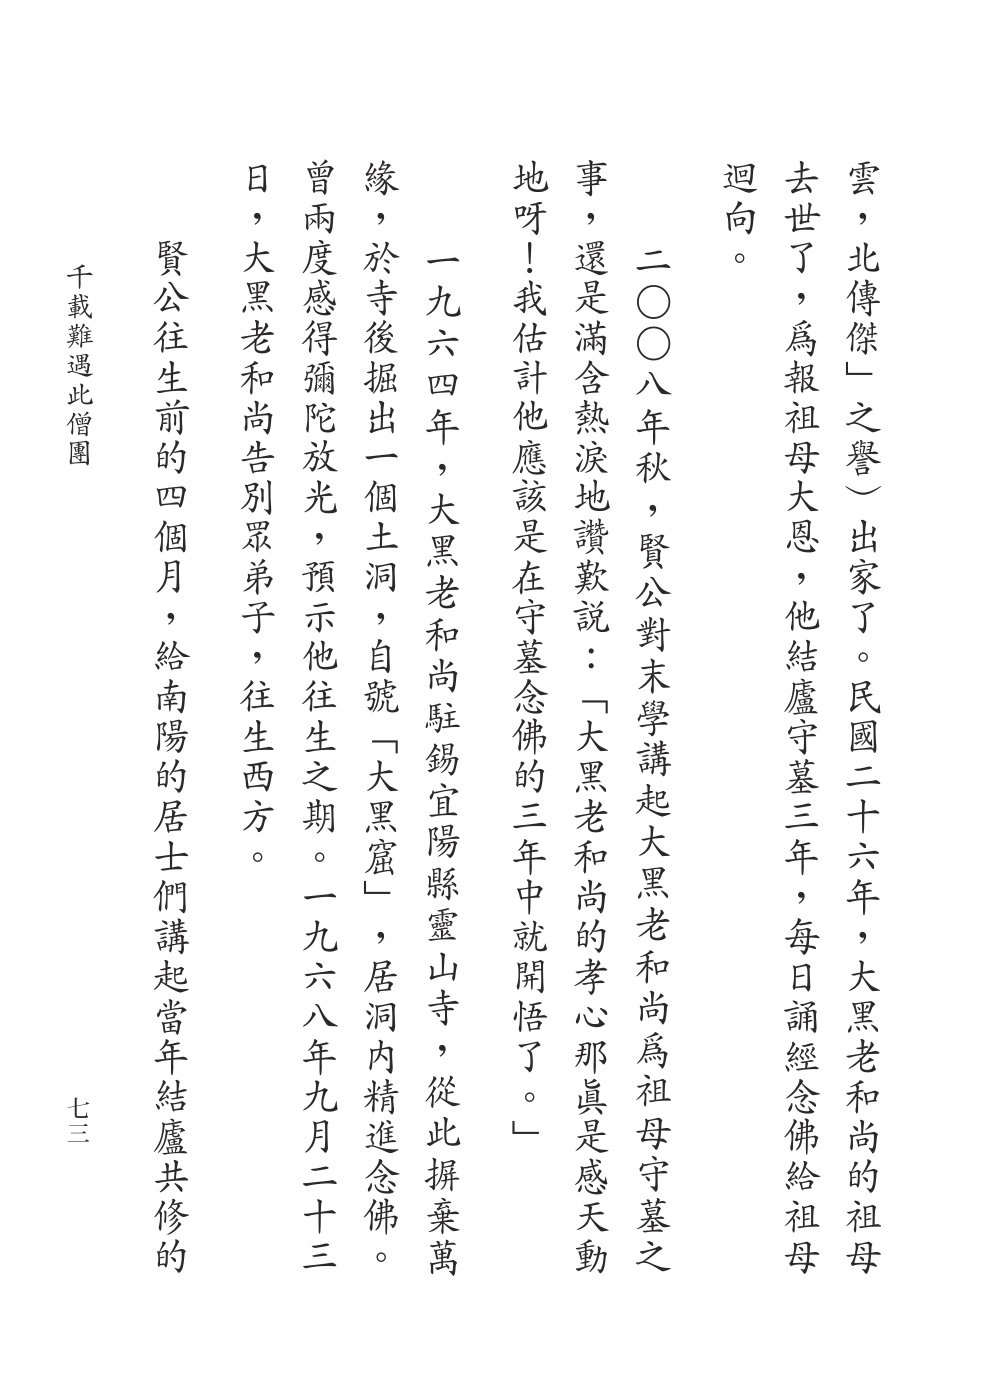 雲，北傳傑」之譽）出家了。民國二十六年，大黑老和尚的祖母
去世了，爲報祖母大恩，他結廬守墓三年，每日誦經念佛給祖母
迴向。
二〇〇八年秋，賢公對末學講起大黑老和尚爲祖母守墓之
事，還是滿含熱淚地讚歎説：「大黑老和尚的孝心那眞是感天動
地呀！我估計他應該是在守墓念佛的三年中就開悟了。」
一九六四年，大黑老和尚駐錫宜陽縣靈山寺，從此摒棄萬
緣，於寺後掘出一個土洞，自號「大黑窟」，居洞内精進念佛。
曾兩度感得彌陀放光，預示他往生之期。一九六八年九月二十三
日，大黑老和尚告別眾弟子，往生西方。
賢公往生前的四個月，給南陽的居士們講起當年結廬共修的
千載難遇此僧團
七三